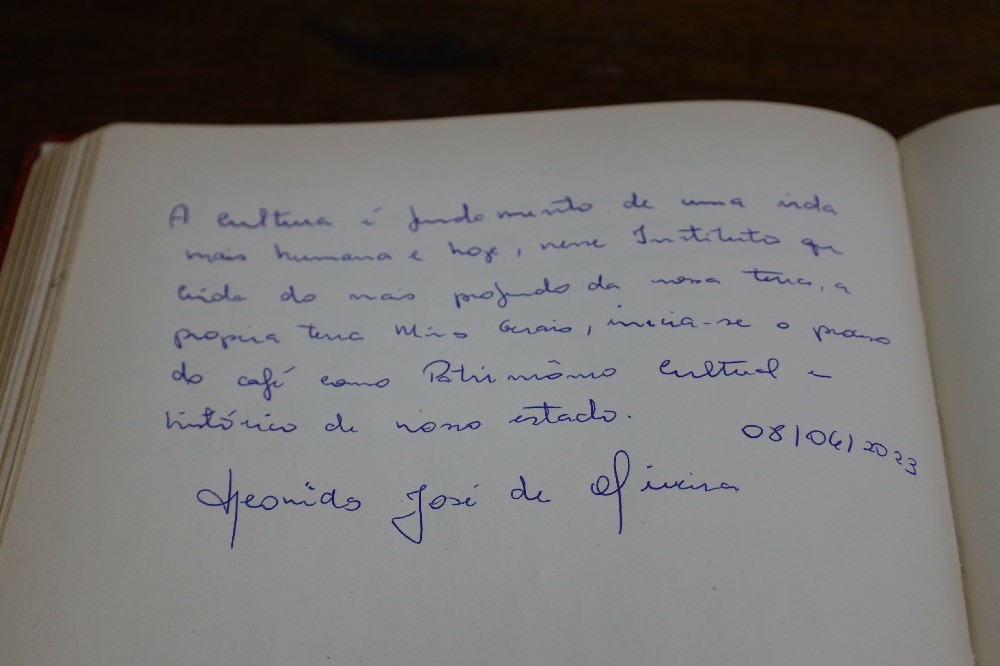 A cultura é fundamento de uma vida
mais humana e hoje, nesse Instituto que
cuida do mais profundo da nossa terra, a
própria terra Minas Gerais, inicia-se o processo
do café como Patrimônio Cultural e
histórico de nosso estado.
08/06/2023
Leonidas José de Oliveira